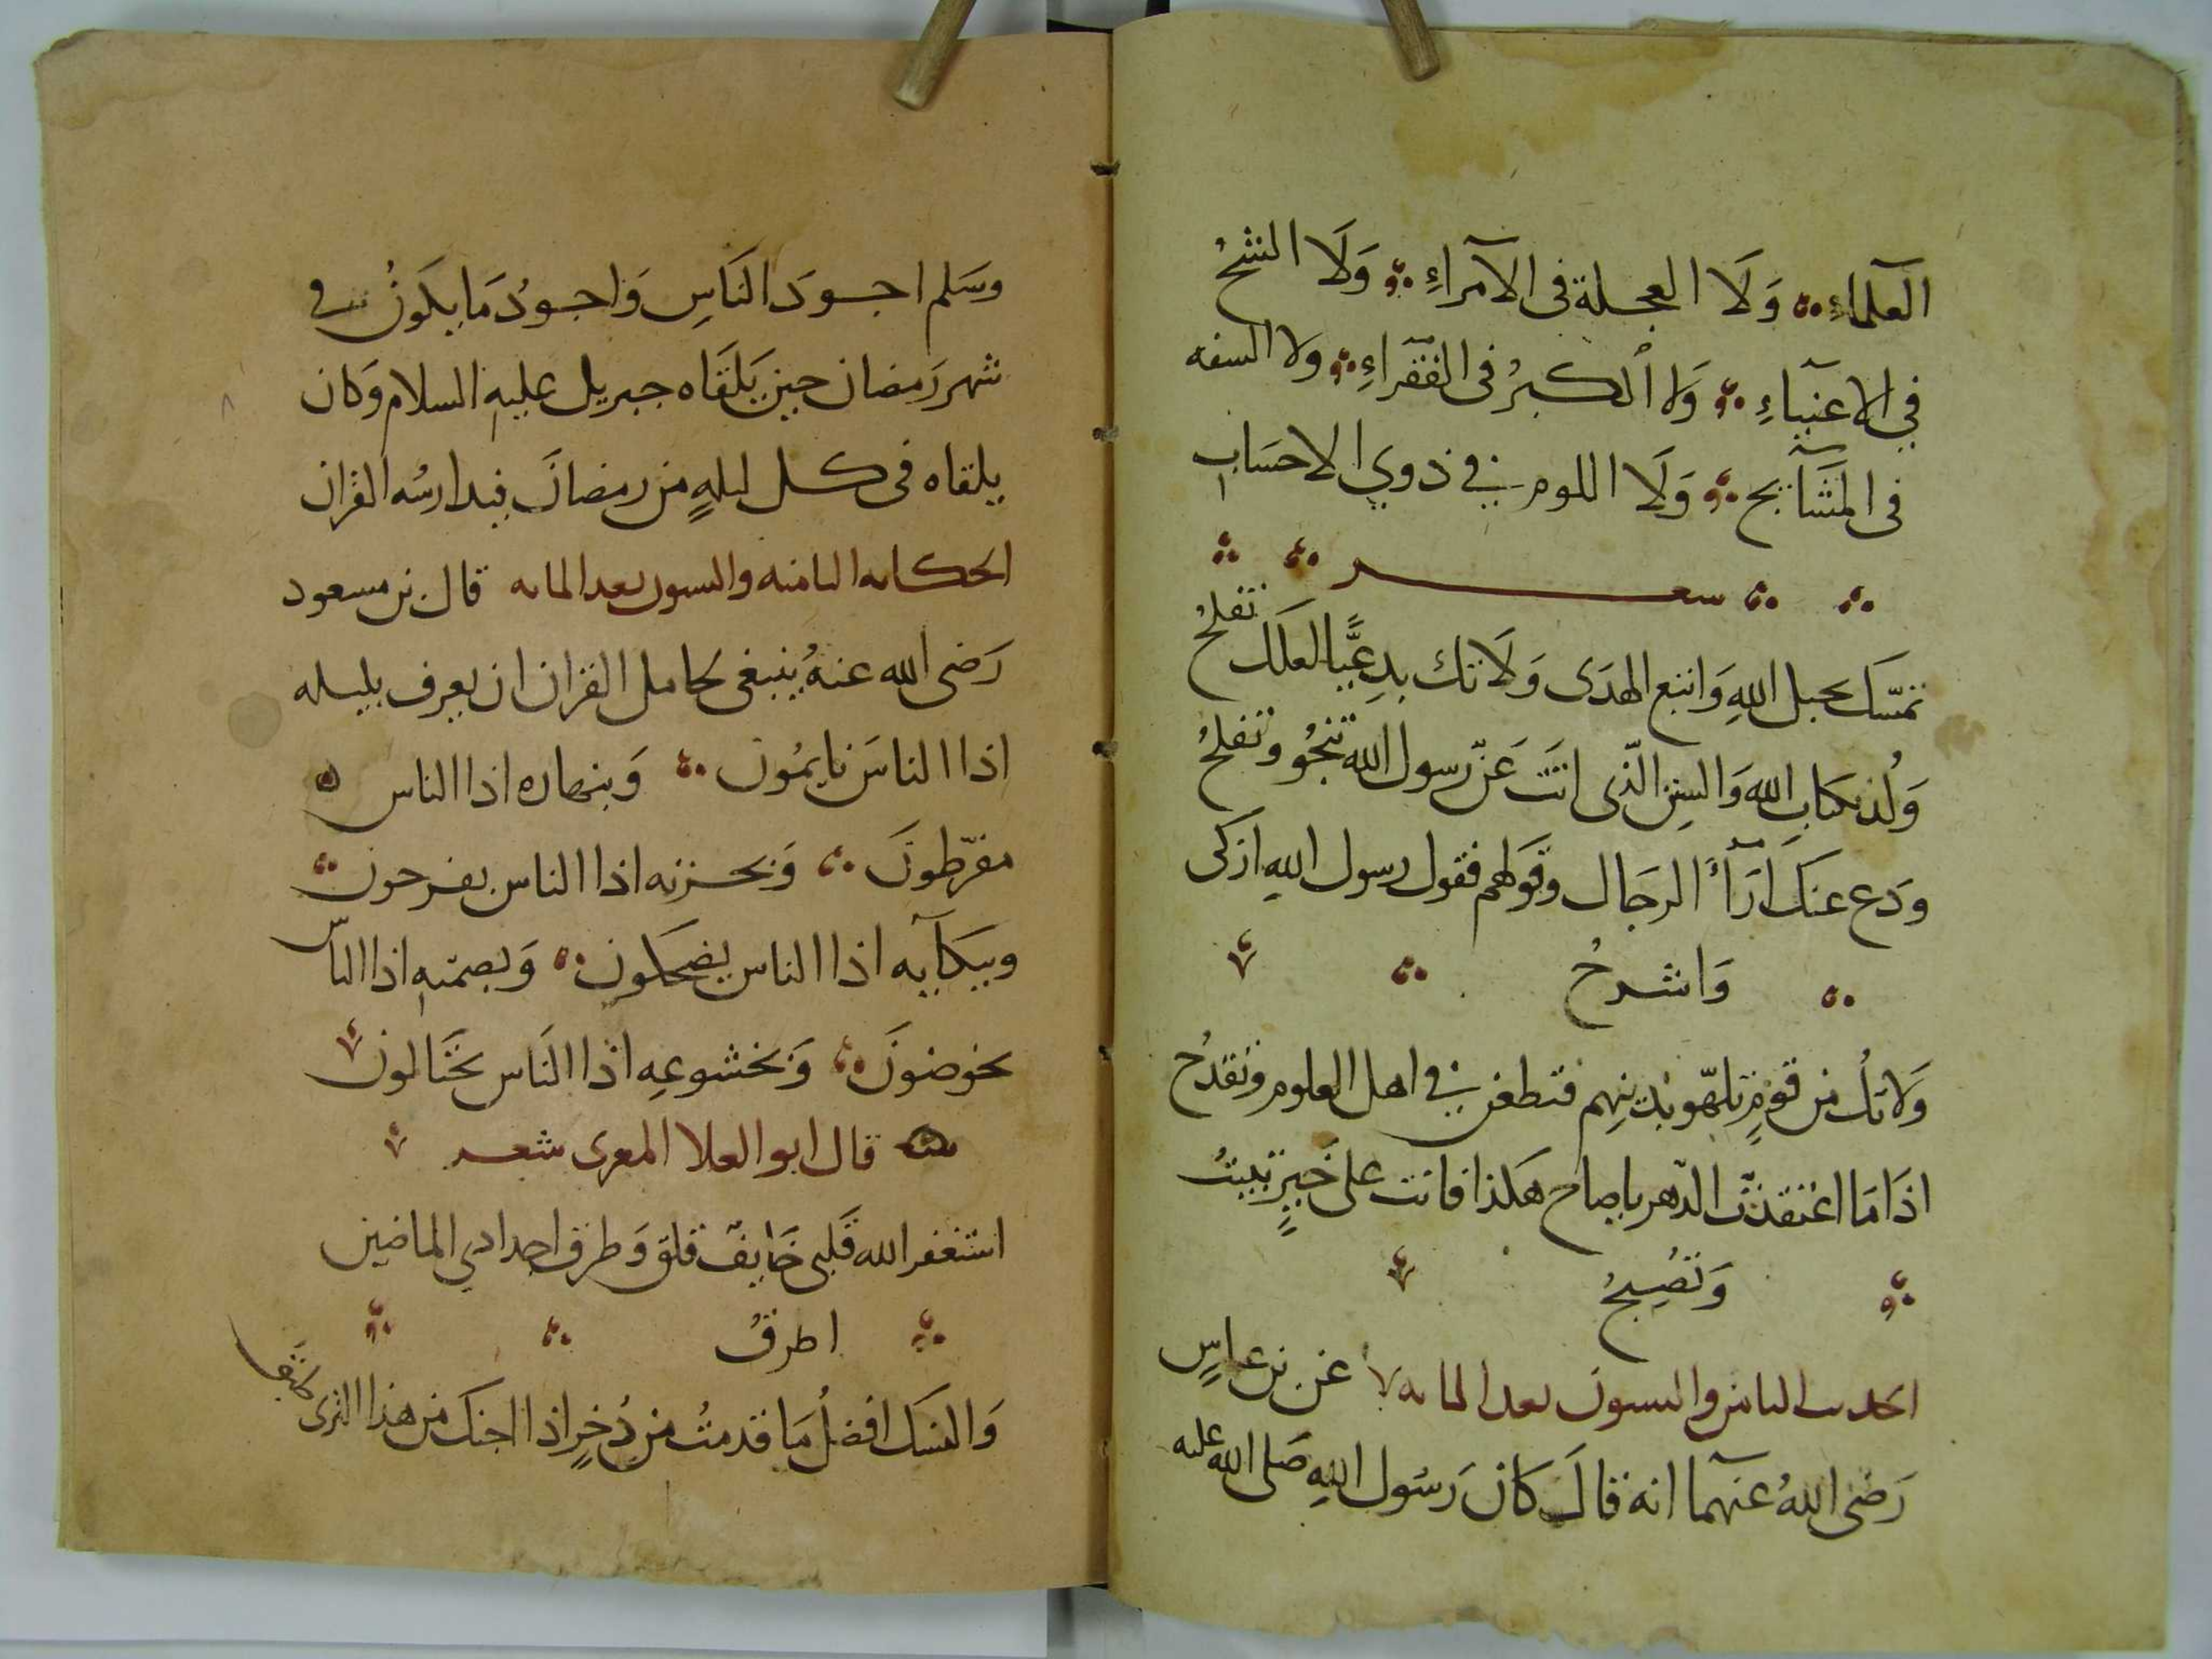 العلماءِ وَلَا العجلة فى الآمراءِ وَلَا الشحُ
في الاغنياءِ وَلا الكبرُ فى الفقراءِ ولا السفه
فى المشَآيخ وَلَا اللوم في ذوي الاحسَاب
شعر
تمسّك بحبل اللهِ وَاتبع الهدَى وَلَا تك بدعيًّا لعلك تفلحُ
وَلُذ بكتابِ الله وَالسنن الّتى اتَتَ عَن رسول الله تنجُو وتفلحُ
ودَع عنك ارَآءُ الرجَال وقولهم فقول رسول اللهِ ازكى
وَاشرحُ
وَلا تكُ من قومٍ تلهّو بدينهم فتطعن في اهل العلوم وتقدحُ
اذَا مَا اعتقدتَ الدّهر ياصاح هكذا فانت على خيرٍ تبيتُ
وَتصُبحُ
الحديث الثامن والتسعون بعد المايه عن بن عباسٍ
رَضى اللهُ عنهما انه قالَ كان رَسُول اللهِ صَلى الله عليه
وسَلم اجودَ النَاسِ وَاجودُ مَا يكَونُ في
شهر رَمضان حين يَلقَاه جبريل عليهِ السلام وَكان
يلقاه فى كل ليلهٍ من رمضانَ فيدارسُه القران
الحكايه الثامنه والتسعون بعد المايه قال بن مسعود
رَضى الله عنهُ ينبغى لحامل القران ان يعرف بليله
اذا الناسَ نايمُون وَبنهاره اذا الناس
مفرّطونَ وَبحزنه اذا الناس يفرحون
وببكآيه اذا الناس يضحكون وَبصمتهِ اذا الناس
يخوضونَ وَبخشوعِه اذا النَاس يختالون
قال ابو العلا المعرى شعر
استغفر الله قَلبى خَايفٌ قلق وَطرق اجدادي الماضين
اطرقُ
وَالنسك افضلُ مَا قدمتُ من دُخرٍ اذا اجنك من هذا الثرى